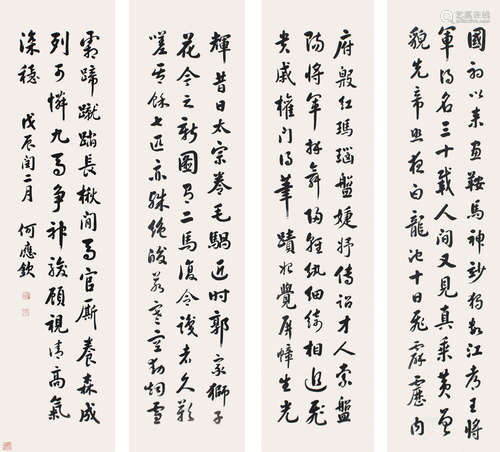 國初以來畫鞍馬神妙獨數江都王將
軍得名三十載人間又見真乘黃曾
貌先帝照夜白龍池十日飛霹靂內
府殷紅瑪瑙盤婕妤傳詔才人索盤
賜將軍拜舞歸輕紈細綺相追飛
貴戚權門得筆蹟始覺屏幛生光
輝昔日太宗拳毛騧近時郭家獅子
花今之新圖有二馬復令識者久歎
嗟其餘七匹亦殊絕迥若寒空動烟雪
霜蹄蹴踏長楸間馬官廝養森成
列可憐九馬爭神駿顧視清高氣
深穩 戊辰閏二月 何應欽